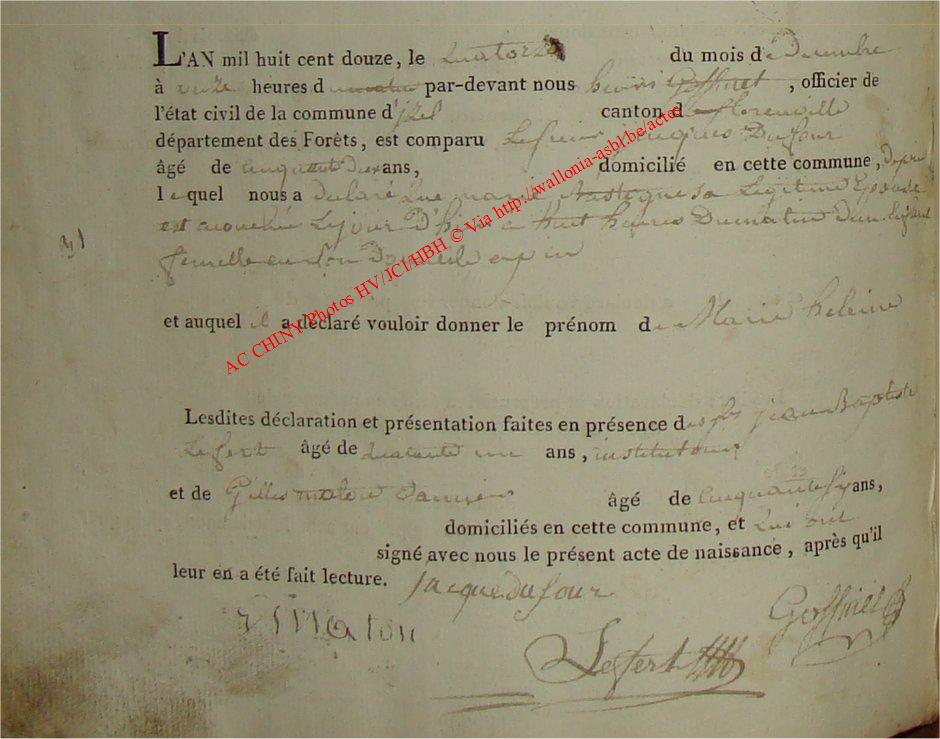 L'AN mil huit cent douze, le quatorze du mois de Decembre
à onze heures du matin par-devant nous henri Goffinet, officier de
l'état civil de la commune d'jzel canton de florenville
département des Forêts, est comparu Le sieur jacques Dufour
âgé de cinquante deux ans, domicilié en cette commune,
lequel nous a declaré que marie Nastogne sa Legitime Epouse
est acouchée Le jour d'hier a huit heures Du matin d'un Enfant
femelle en son Domicile
31
et auquel il a déclaré vouloir donner le prénom de Marie heleine
Lesdites déclaration et présentation faites en présence des jean Baptiste
Lefert âgé de ans, instituteur
et de Gilles maton âgé de Cinquante six ans,
domiciliés en cette commune, et qui ont
signé avec nous le présent acte de naissance, après qu'il
leur en a été fait lecture. jacque dufour
maton Goffinet
Lefert
AC CHINY Photos HV/JCl/HBH © Via http://wallonia-asbl.be/actes